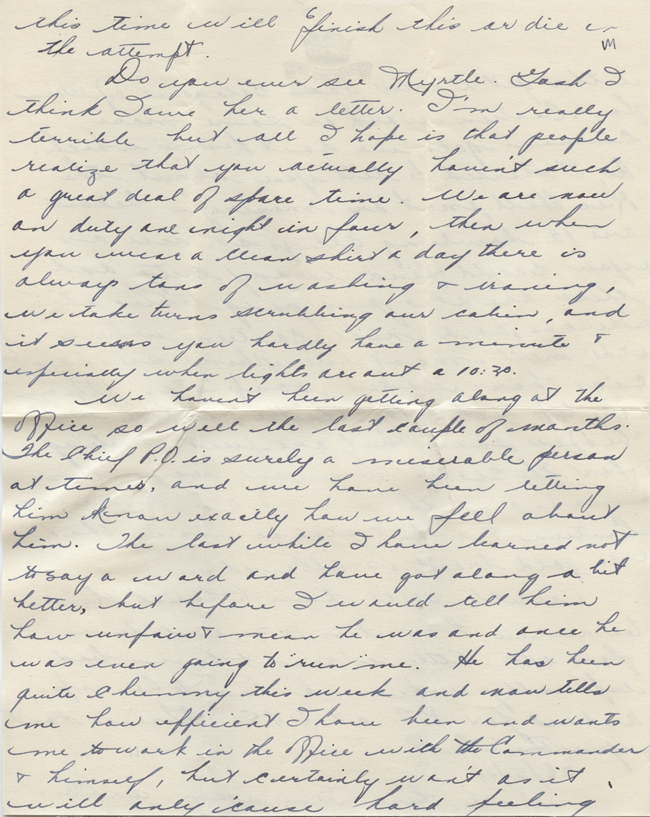 this time will "finish this or die in
the attempt.
Do you ever see Myrtle. Gosh I
think I owe her a letter. I'm really
terrible but all I hope is that people
realize that you actually haven't such
a great deal of spare time. We are now
on duty one night in four, then when
you wear a clean shirt a day there is
always tons of washing & ironing,
we take turns scrubbing our cabin, and
it seems you hardly have a minute &
especially when lights are out a 10:30.
We haven't been getting along at the
office so well the last couple of months.
The Chief P.O. is surely a miserable person
at times, and we have been letting
him know exactly how we feel about
him. The last while I have learned not
to say a word and have got along a bit
better, but before I would tell him
how unfair & mean he was and once he
was even going to "run" me. He has been
quite chummy this week and now tells
me how efficient I have been and wants
me to work in the office with the Commander
& himself, but certainly won't as it
will only cause hard feeling